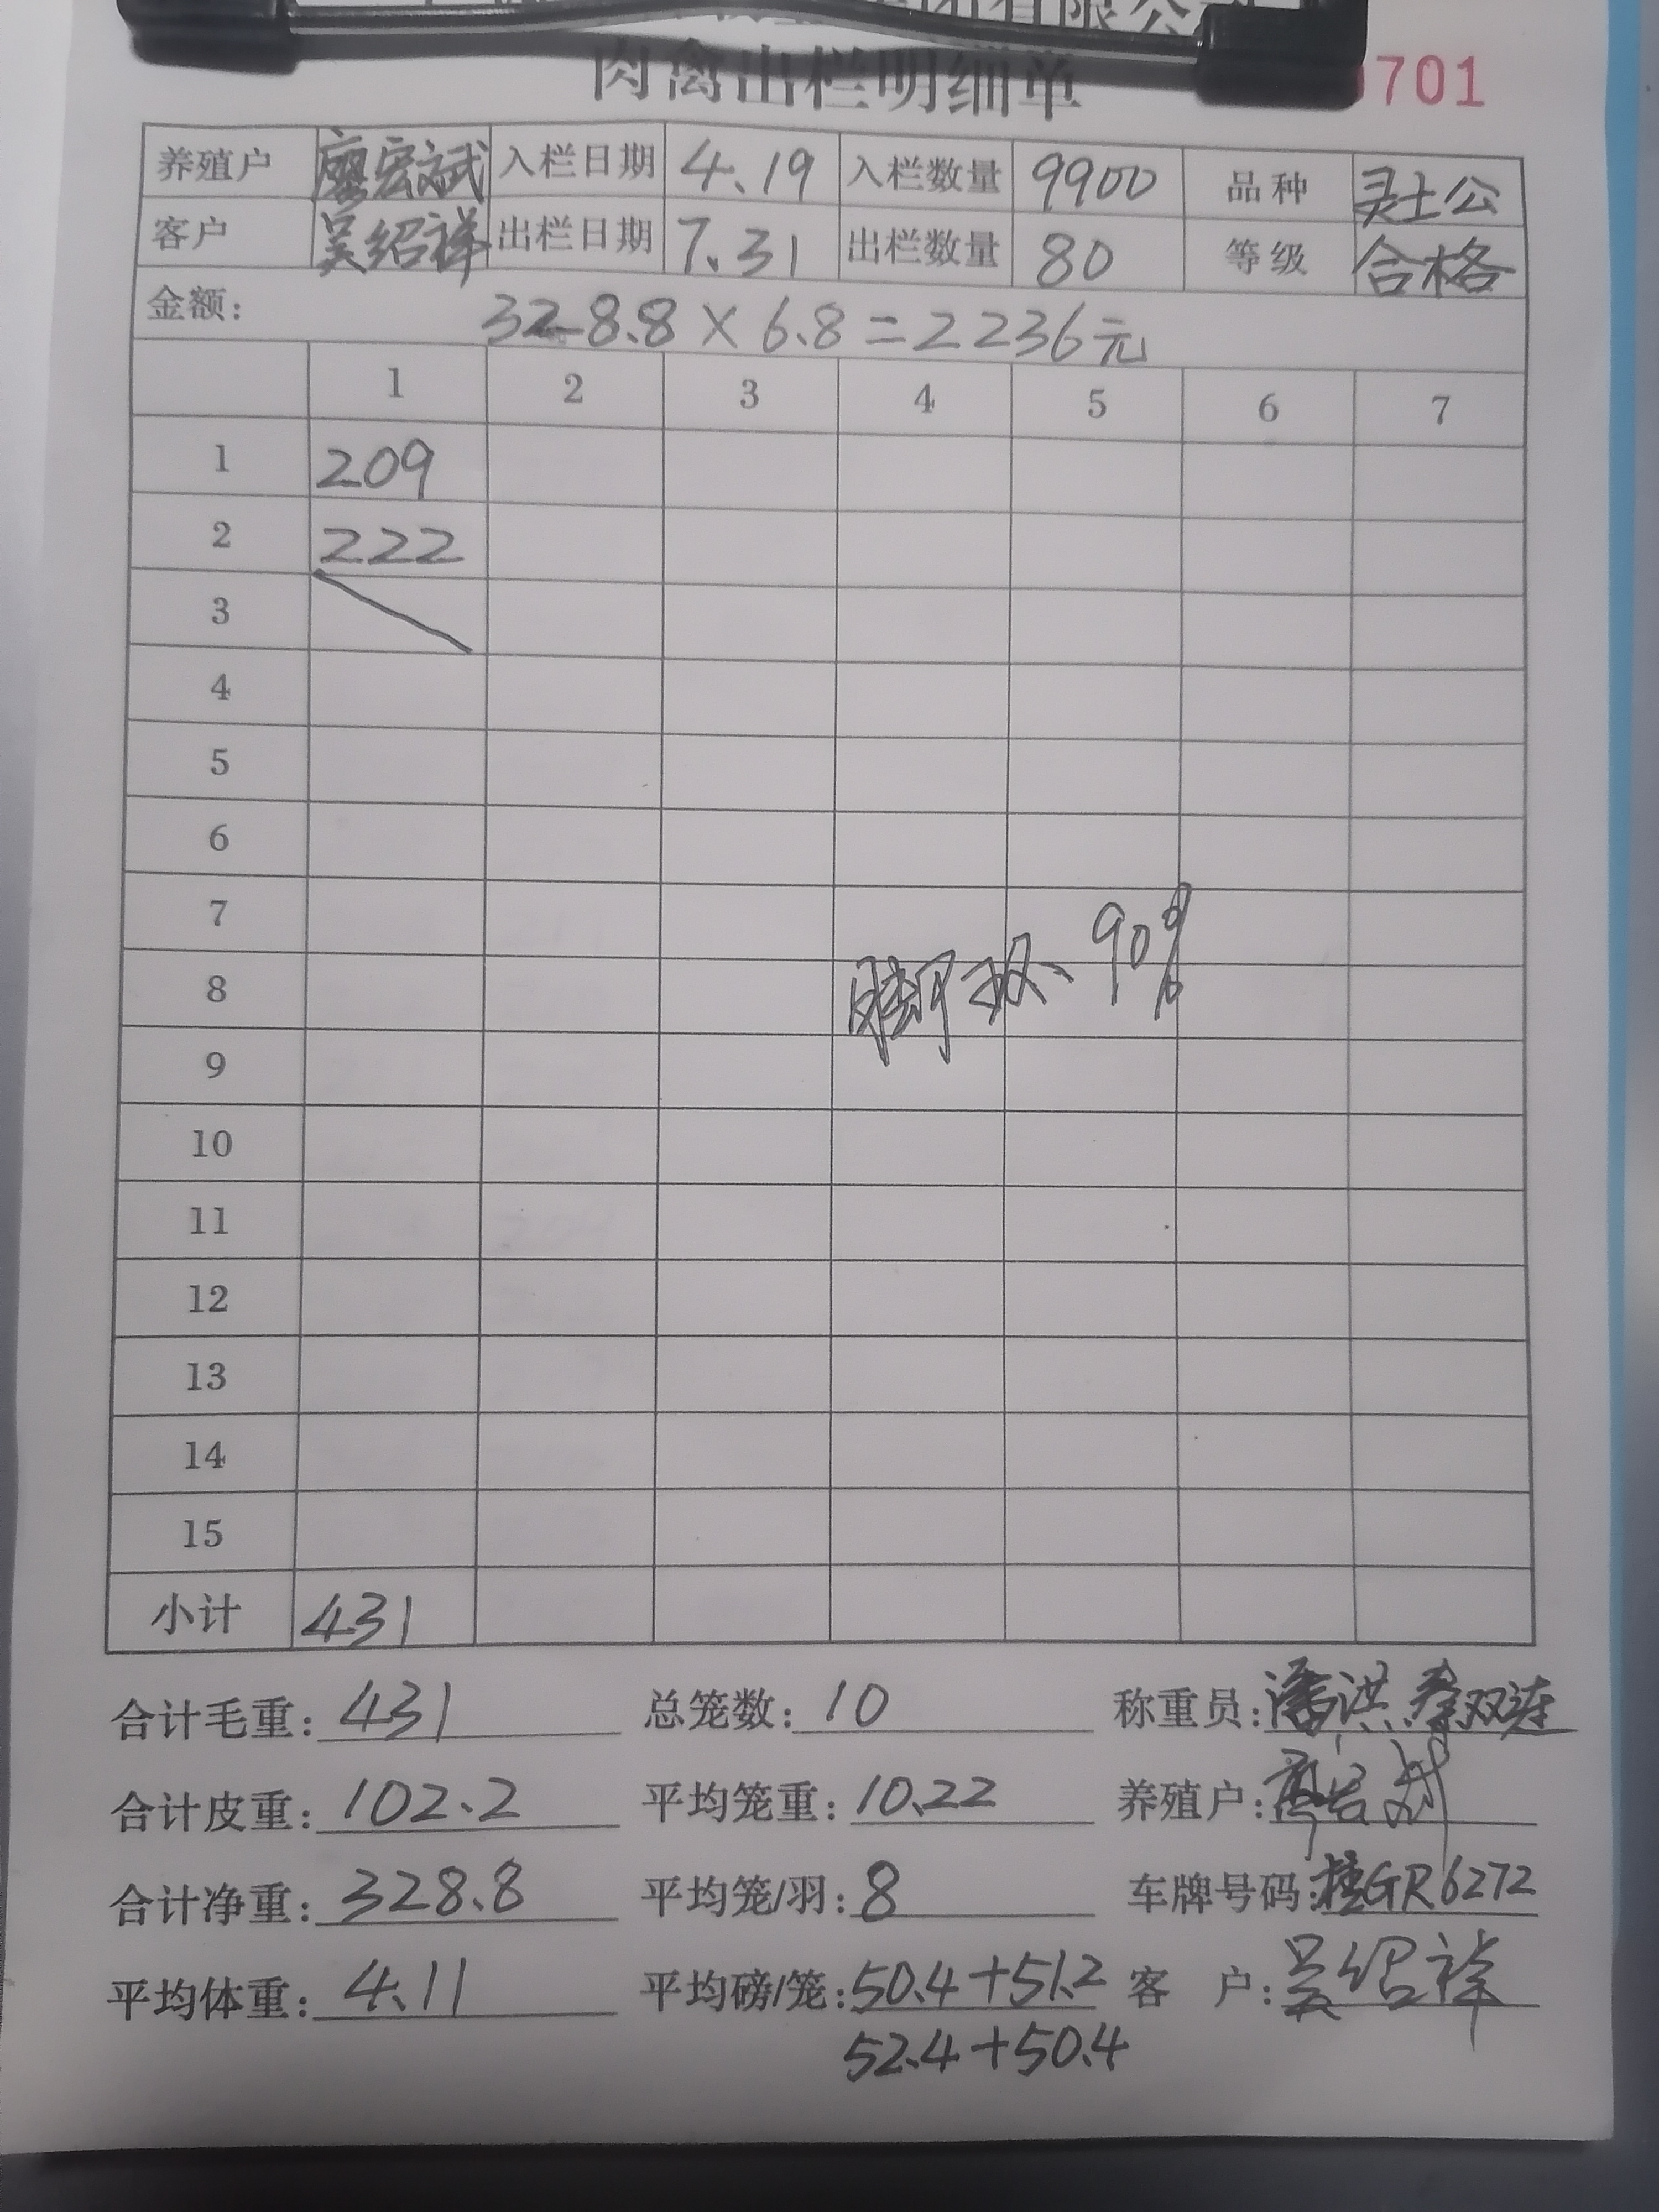 有限公司
肉禽出栏明细单
701
养殖户 廖宏斌 入栏日期 4.19 入栏数量 9900 品种 灵土公
客户 吴绍祥 出栏日期 7.31 出栏数量 80 等级 合格
金额: 328.8×6.8=2236元
1 2 3 4 5 6 7
1 209
2 222
3
4
5
6
7
8 脚 90%
9
10
11
12
13
14
15
小计 431
合计毛重: 431 总笼数: 10 称重员: 潘洪 秦双连
合计皮重: 102.2 平均笼重: 10.22 养殖户: 廖宏斌
合计净重: 328.8 平均笼/羽: 8 车牌号码: 桂GR6272
平均体重: 4.11 平均磅/笼: 50.4+51.2 客 户: 吴绍祥
52.4+50.4